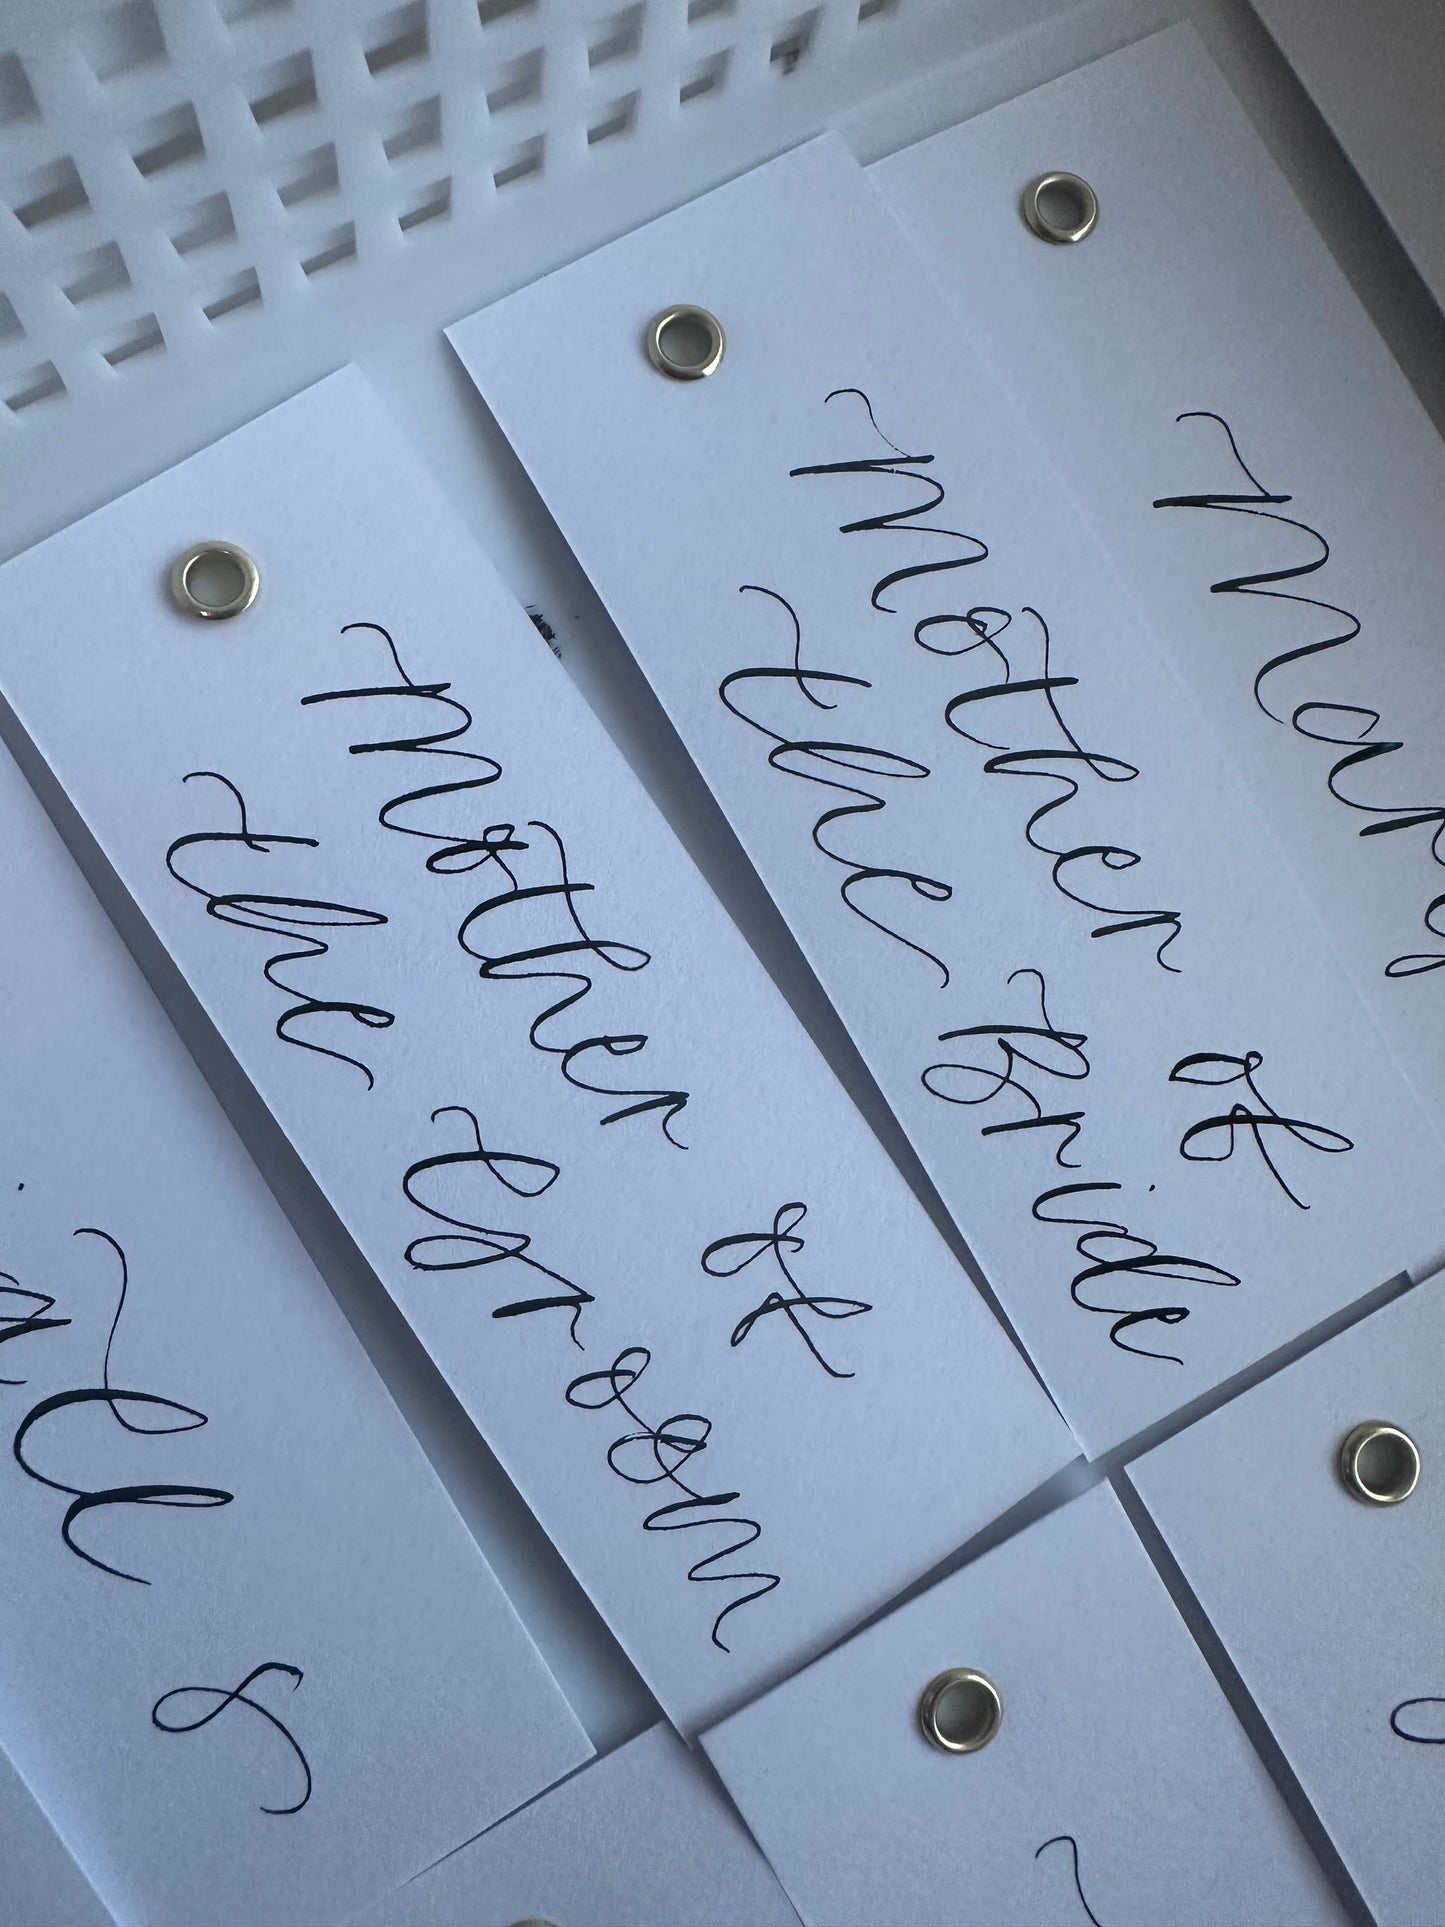 Mother of
the Groom
Mother of
the Bride
Mary